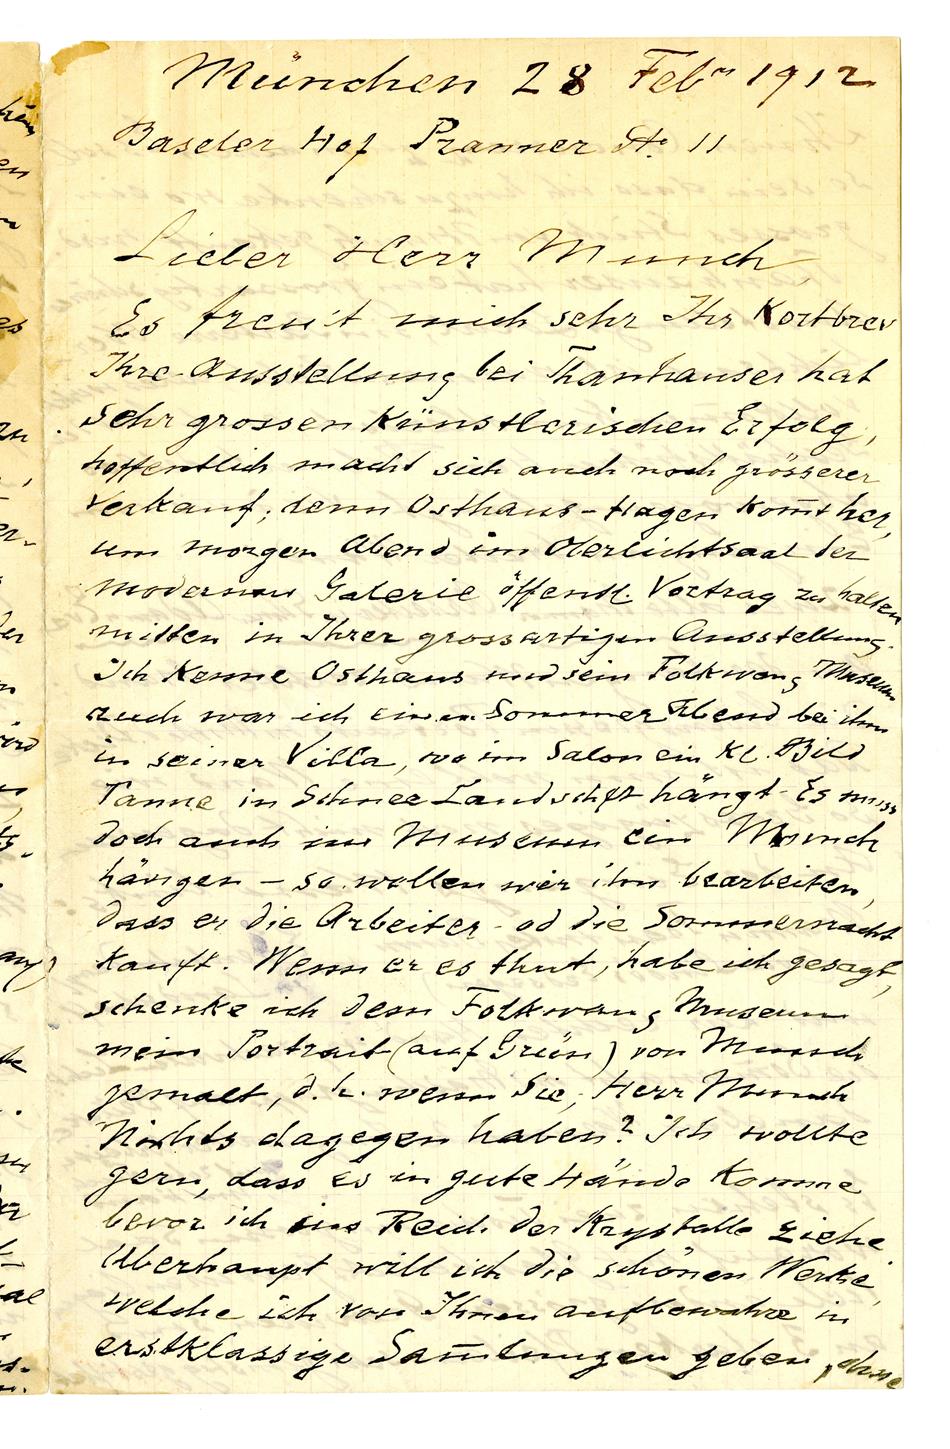 München 28 Febr 1912
Baseler Hof Pranner Str. 11
Lieber Herr Munch
Es freu't mich sehr Ihr Kortbrev
Ihre Ausstellung bei Thanhauser hat
sehr grossen Künstlerischen Erfolg,
hoffentlich macht sich auch noch grösserer
Verkauf; denn Osthaus-Hagen kom̅t her,
um morgen Abend im Oberlichtsaal der
modernen Galerie öffentl. Vortrag zu halten
mitten in Ihrer grossartigen Ausstellung.
Ich Kenne Osthaus und sein Folkwang Museum
auch war ich einen Sommer Abend bei ihm
in seiner Villa, wo im Salon ein Kl. Bild
Tanne in Schnee Landschft hängt - Es muss
doch auch im Museum ein Munch
hängen – so wollen wir ihn bearbeiten,
dass er die Arbeiter - od die Sommernacht
kauft. Wenn er es thut, habe ich gesagt,
schenke ich dem Folkwang Museum
mein Portrait (auf Grün) von Munch
gemalt, d.h. wenn Sie, Herr Munch
Nichts dagegen haben? Ich wollte
gern, dass es in gute Hände Komme
bevor ich ins Reich der Krystalle ziehe,
Uberhaupt will ich die schönen Werke,
welche ich von Ihnen aufbewahre in
erstklassige Sam̅lungen geben, ohne